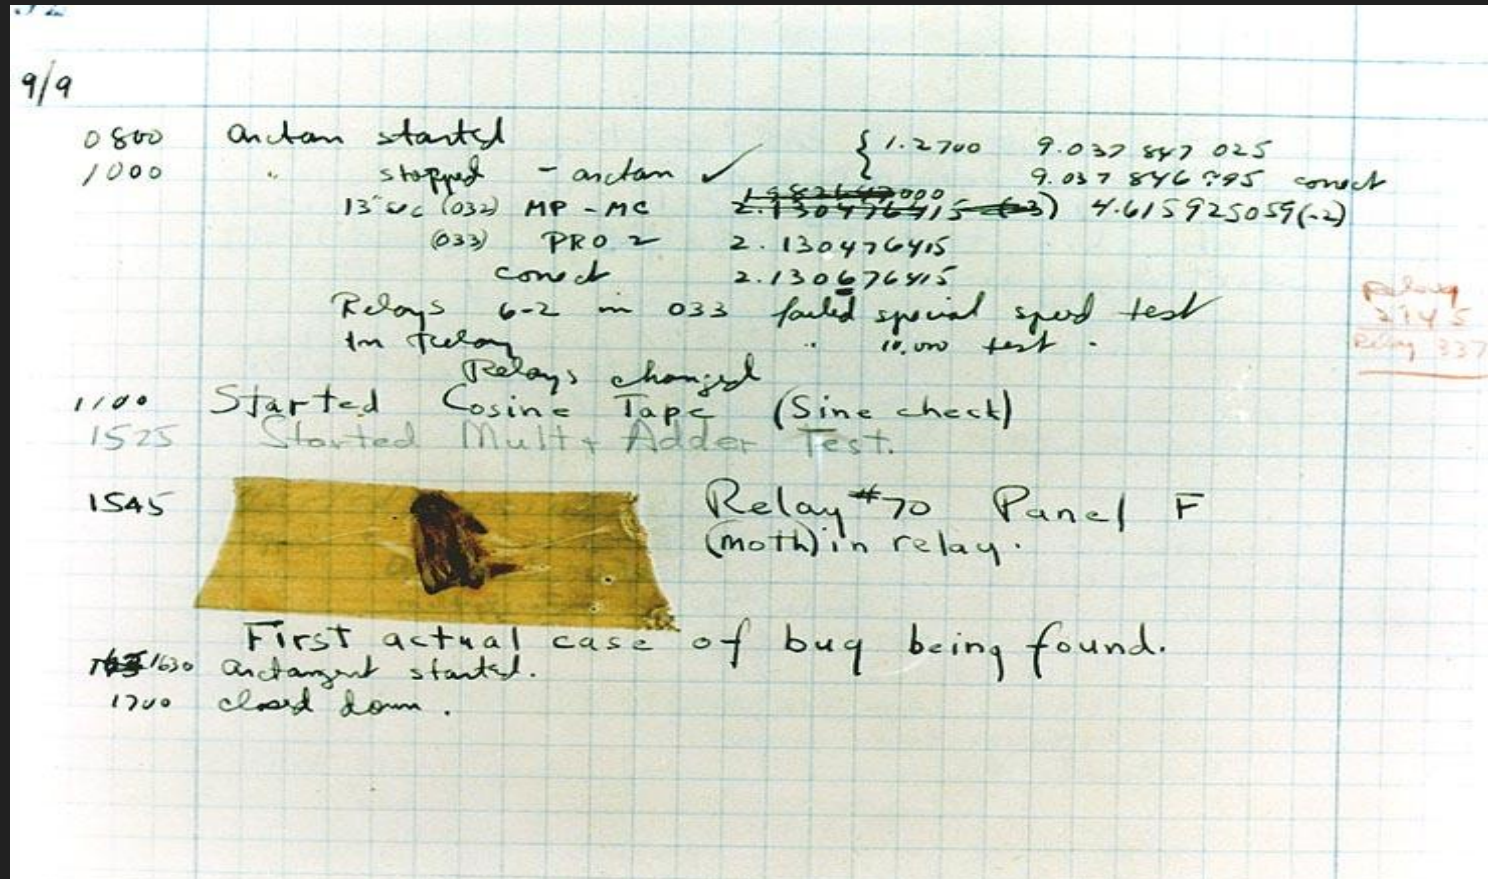 9/9
0800 arctan started { 1.2700 9.037 847 025
1000 " stopped - arctan ✓ 9.037 846 995 correct
13"uc (032) MP - MC 1.982647000 2.130476415 (-3) 4.615925059(-2)
(033) PRO 2 2.130476415
correct 2.130676415
Relays 6-2 in 033 failed special speed test
In Relay " 10,000 test.
Relays changed
1100 Started Cosine Tape (Sine check)
1525 Started Mult + Adder Test.
1545 Relay #70 Panel F
(moth) in relay.
First actual case of bug being found.
1630 arctangent started.
1700 closed down.
Relay
2145
Relay 337